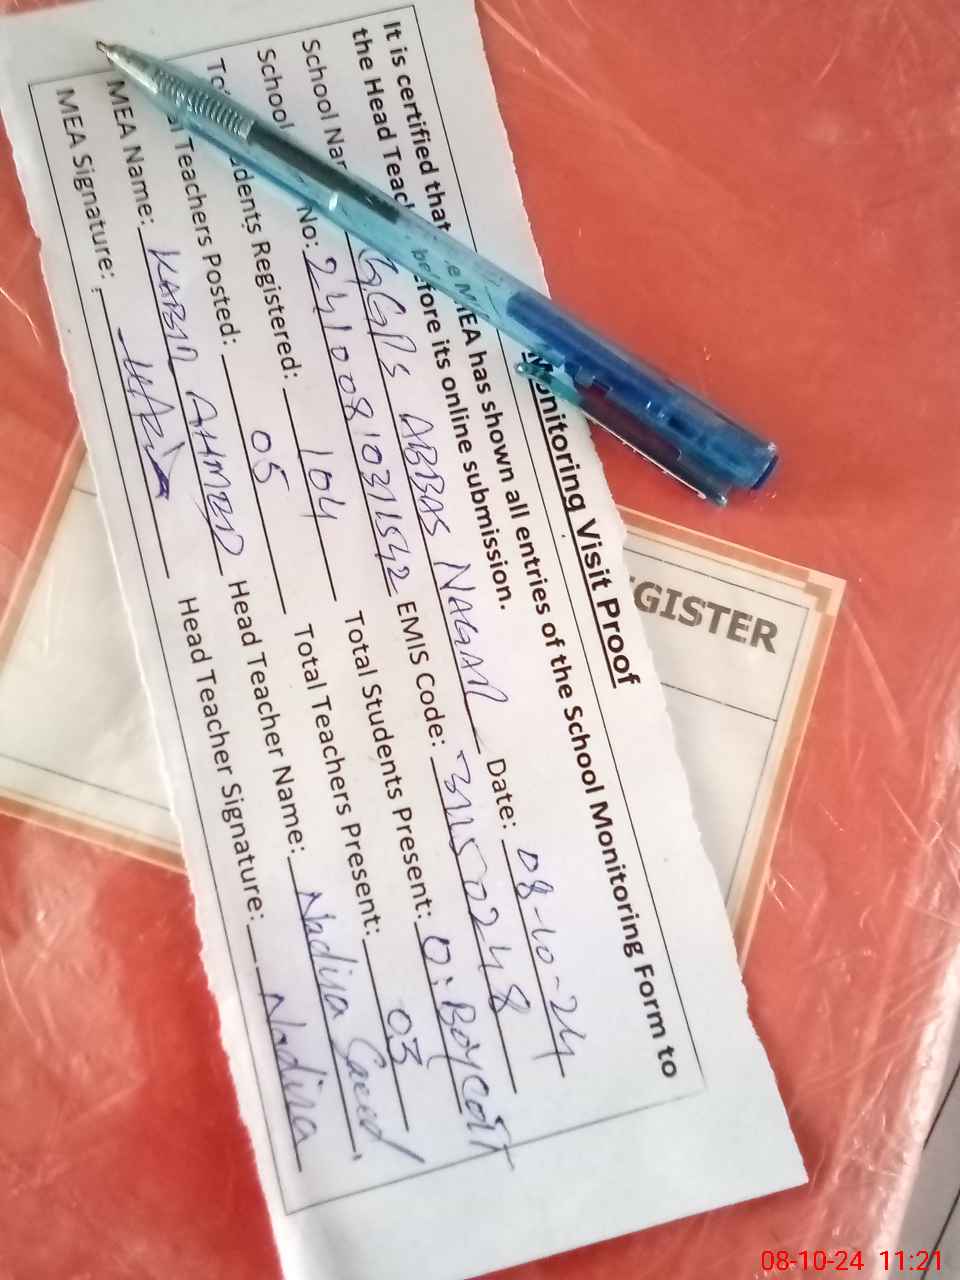 Monitoring Visit Proof
It is certified that MEA has shown all entries of the School Monitoring Form to
the Head before its online submission.
School GGPS ABBAS NAGAR Date: 08-10-24
School No: EMIS Code: 31150248
Students Registered: 104 Total Students Present: 0: BOYCOTT
Teachers Posted: 05 Total Teachers Present: 03
MEA Name: KABIR AHMED Head Teacher Name: Nadira Saeed
MEA Signature: Head Teacher Signature: Nadira
GISTER
08-10-24 11:21